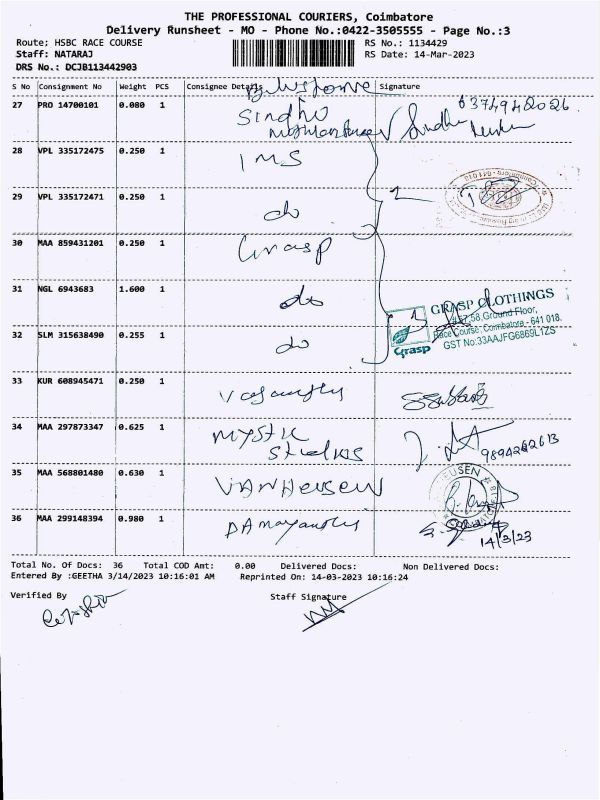 THE PROFESSIONAL COURIERS, Coimbatore
Delivery Runsheet - MO - Phone No.:0422-3505555 - Page No.:3
Route: HSBC RACE COURSE
Staff: NATARAJ
DRS No.: DCJB113442903
RS No.: 1134429
RS Date: 14-Mar-2023
S No Consignment No Weight PCS Consignee Details Signature
27 PRO 14700101 0.080 1 Sindhu 6374942026
28 VPL 335172475 0.250 1 IMS
29 VPL 335172471 0.250 1 do
30 MAA 859431201 0.250 1 Grasp
31 NGL 6943683 1.600 1 do
GRASP CLOTHINGS
Ground Floor,
Race Course, Coimbatore - 641 018.
GST No:33AAJFG6869L1ZS
Grasp
32 SLM 315638490 0.255 1 do
33 KUR 608945471 0.250 1
34 MAA 297873347 0.625 1 MYSTIC
Studios
35 MAA 568801480 0.630 1 VANHEUSEN
36 MAA 299148394 0.980 1 DAmayanthi
14/3/23
Total No. Of Docs: 36 Total COD Amt: 0.00 Delivered Docs: Non Delivered Docs:
Entered By :GEETHA 3/14/2023 10:16:01 AM Reprinted On: 14-03-2023 10:16:24
Verified By Staff Signature